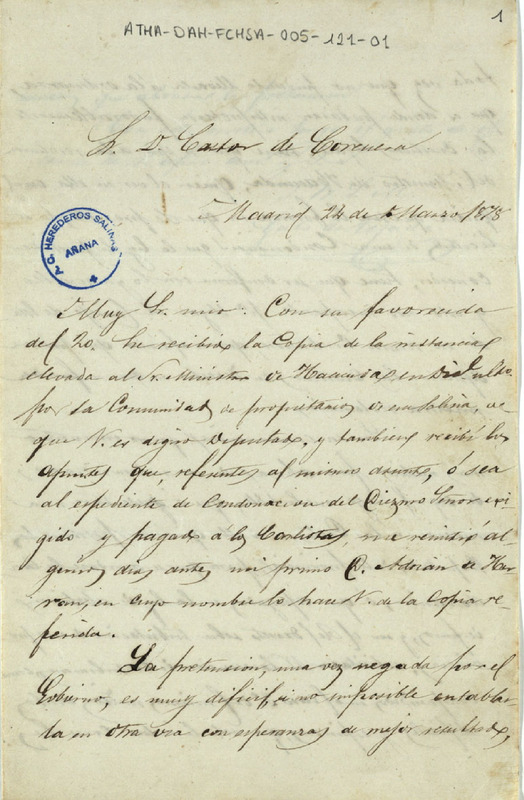 1
ATHA-DAH-FCHSA-005-121-01
Sr. D. Castor de Corcuera
Madrid 24 de Marzo 1878
P. C. HEREDEROS SALINAS
AÑANA
Muy Sr. mio: Con su favorecida
del 20. he recibido la Copia de la instancia
elevada al Sr. Ministro de Hacienda en
por la Comunidad de propietarios de esa Salina, de
que V. es digno Diputado, y tambien recibi los
apuntes que, referentes al mismo asunto, ó sea
al espediente de Condonacion del Diezmo Señor exi
gido y pagado á los Carlistas, me remitió al
gunos dias antes mi primo D. Adrián de
en cuyo nombre lo hace V. de la Copia re
ferida.
La pretension, una vez negada por el
Gobierno, es muy dificil si no imposible entablar
la en otra via con esperanzas de mejor resultado,